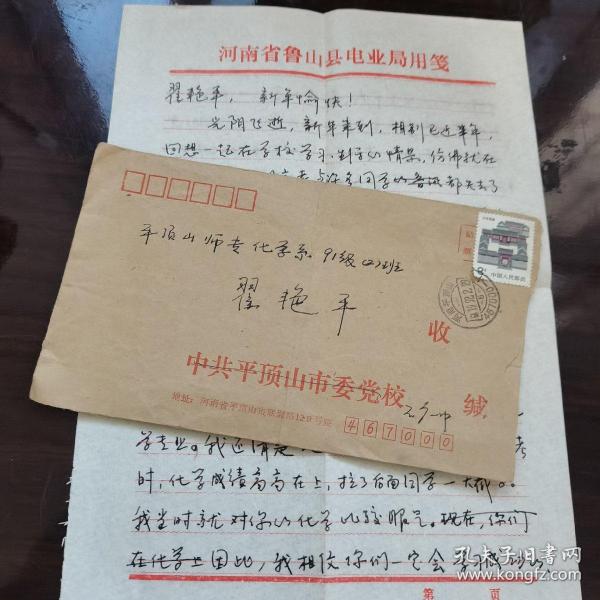 河南省鲁山县电业局用笺
翟艳平，新年愉快！
光阴飞逝，新年来到，相别已近半年，
回想一起在学校学习、生活的情景，仿佛就在
与许多同学的 都失去了
平顶山师专化学系91级(2)班
翟艳平
收
中共平顶山市委党校
缄
地址：河南省平顶山市
467000
中国人民邮政
学专业。我还清楚
考
时，化学成绩高高在上，拉了后面同学一大截。
我当时就对你的化学比较服气。现在，你们
在化学上因此，我相信你们一定会
第 页
孔夫子旧书网
www.kongfz.com